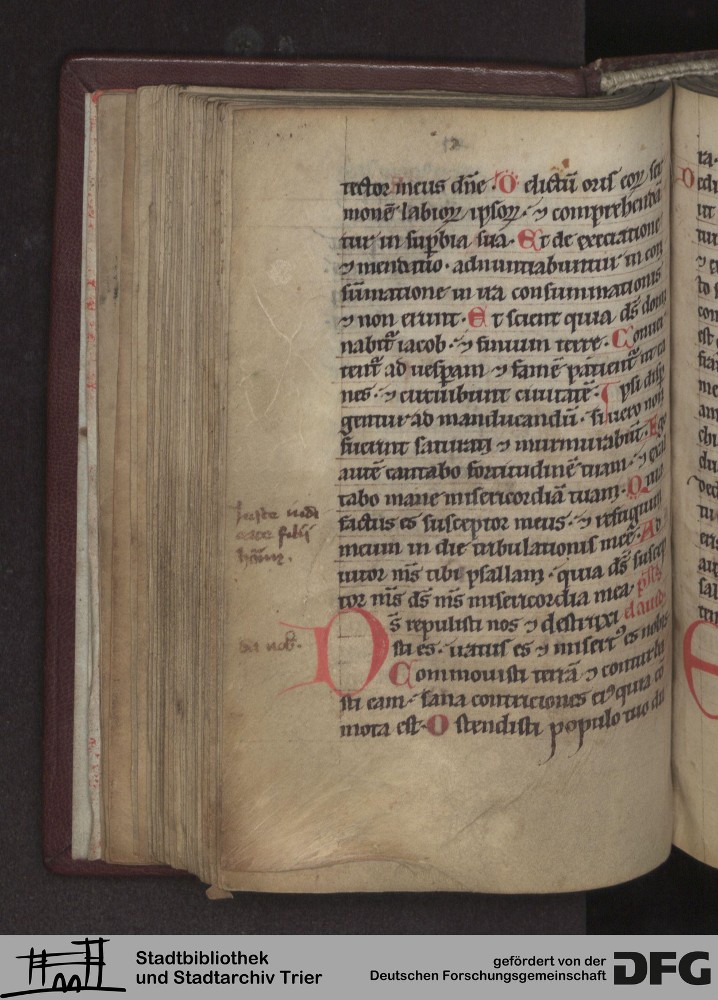 12
tector meus dñe · O dictũ oris eoꝝ ser
monē labioꝝ ipsoꝝ · ⁊ comprehenda
tur in supbia sua · Et de execratione
⁊ mendatio · adnuntiabuntur in con
sũmatione in ira consummationis
⁊ non erunt · Et scient quia ds̄ domi
nabit᷑ iacob · ⁊ finium terre · Conuer
tent᷑ ad uesperam ⁊ famē patient᷑ ut ca
nes · ⁊ circuibunt ciuitatē · Ipsi disp
gentur ad manducandũ · si uero non
fuerint saturati ⁊ murmurabũt · Ego
autē cantabo fortitudinē tuam · ⁊ exal
tabo mane misericordiā tuam · Quia
factus es susceptor meus · ⁊ refugium
meum in die tribulationis meę · Ad
iutor ms̄ tibi psallam · quia ds̄ suscep
tor ms̄ ds̄ ms̄ misericordia mea · ps̄
Ds̄ repulisti nos ⁊ destruxi dauid
sti es · iratus es ⁊ misertꝰ es nobis
Commouisti terrā ⁊ conturba
sti eam · sana contriciones eiꝰ quia cō
mota est · Ostendisti populo tuo du
iuste iudi
cate filij
hōim .
Stadtbibliothek
und Stadtarchiv Trier
gefördert von der
Deutschen Forschungsgemeinschaft
DFG